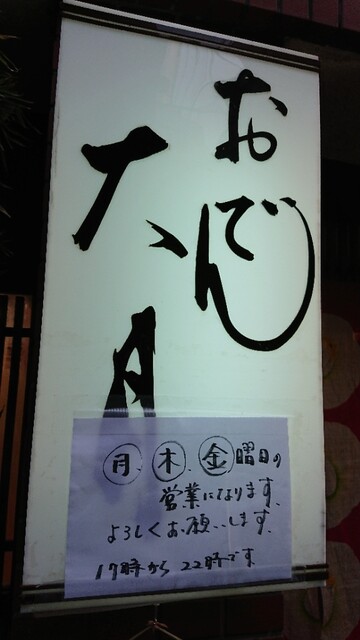 おでん
大月
月、木、金曜日の
営業になります、
よろしくお願いします、
17時から22時です